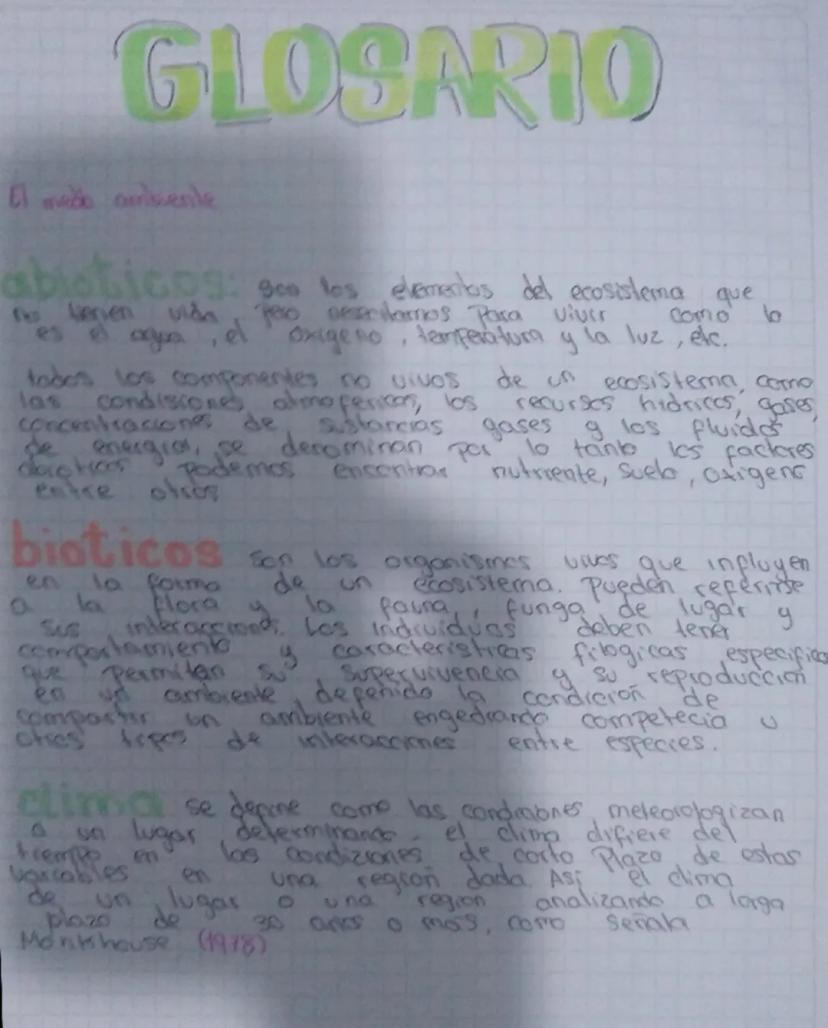 GLOSARIO
El medio ambiente
abioticos: son los elementos del ecosistema que
no tienen vida, pero necesitamos para vivir como lo
es el agua, el oxigeno, temperatura y la luz, etc.
todos los componentes no vivos de un ecosistema, como
las condisiones atmofericas, los recursos hidricos, gases,
concentraciones de sustancias gases y los fluidos
de energia, se denominan por lo tanto los factores
abioticos podemos encontrar nutriente, suelo, oxigeno
entre otros
bioticos son los organismos vivos que influyen
en la forma de un ecosistema. Pueden referirse
a la flora y la fauna, funga de lugar y
sus interacciones. Los individuos deben tener
comportamiento y caracteristicas filogicas especifica
que permitan su supervivencia y su reproduccion
en un ambiente, depenido la condicion de
compartir un ambiente engedrando competecia u
otros tipos de interacciones entre especies.
clima se define como las meteorologizan
a un lugar determinando. el clima difiere del
tiempo en las condiziones de corto Plazo de estas
variables en una region dada. Asi el clima
de un lugar o una region analizando a larga
plazo de 30 años o mas, como señala
Monkhouse (1978)